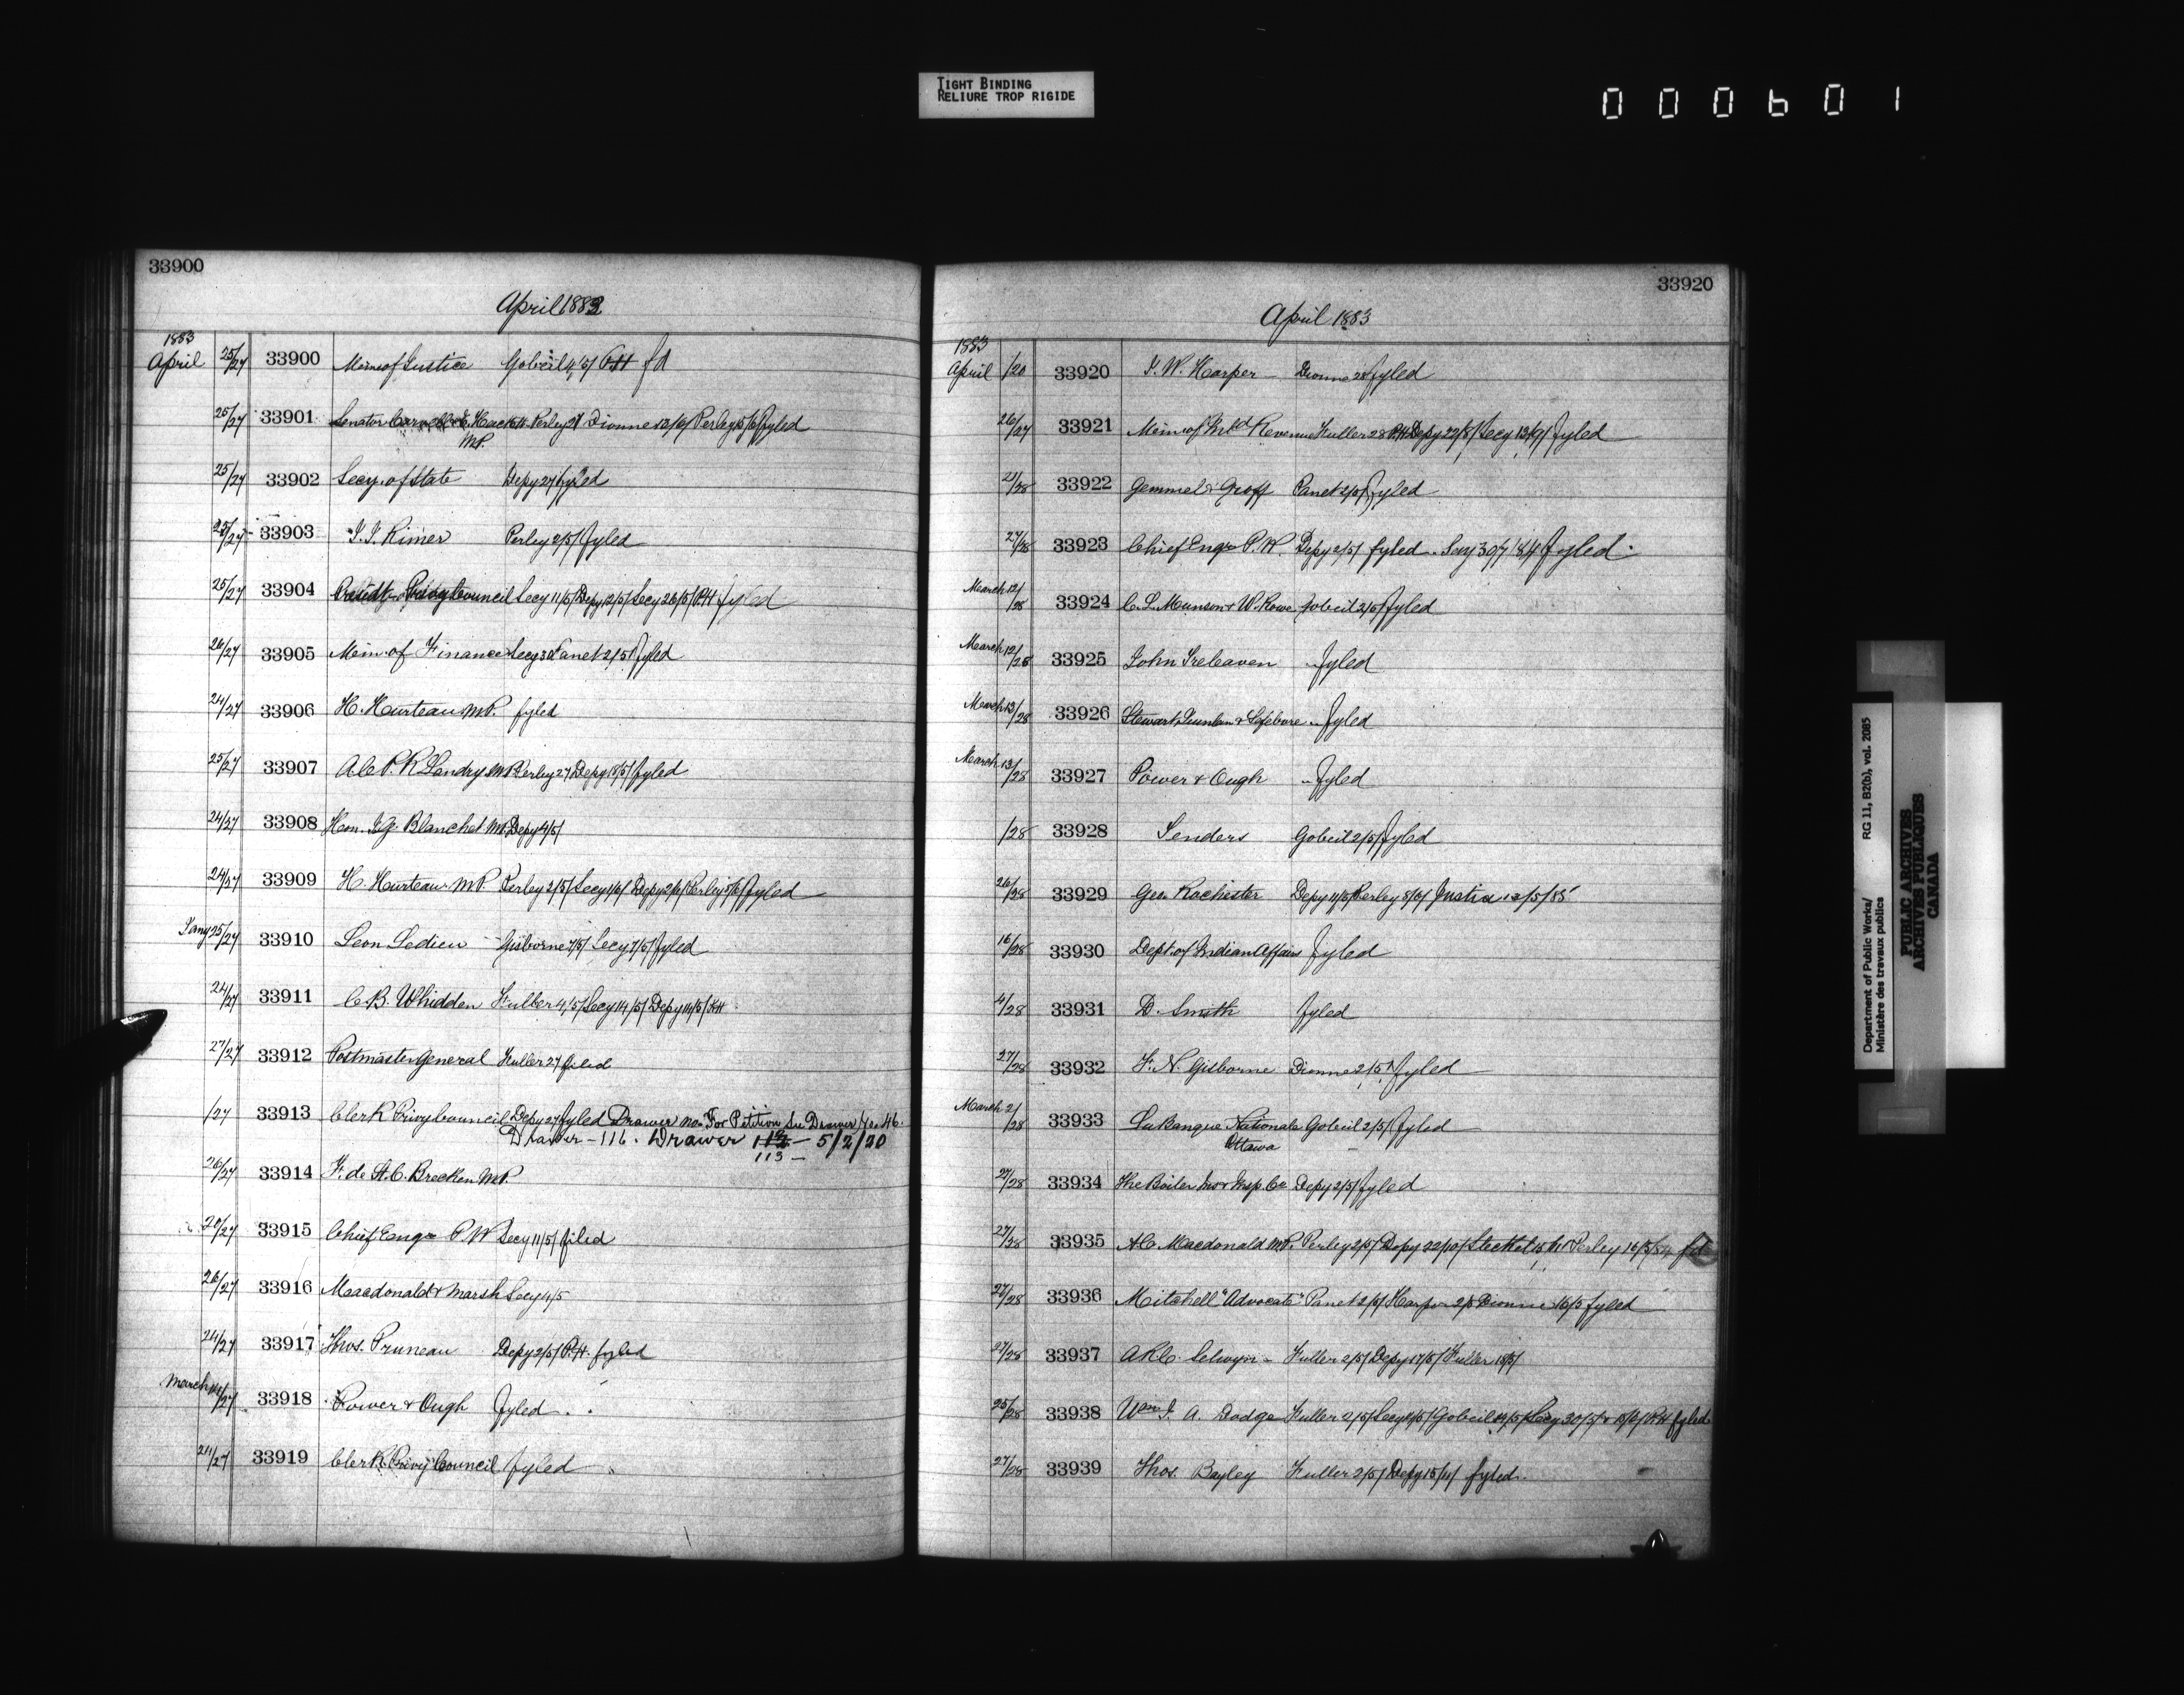 TIGHT BINDING
RELIURE TROP RIGIDE
000601
33900
April 1883
1883
April 25/27 33900 Min of Justice Gobeil 4/5/ P.H fd
25/27 33901 Senator Carvell & E. Hackett Perley 27 Dionne 12/6/ Perley 15/6/ fyled
M.P.
25/27 33902 Secy. of State Depy 27 fyled
25/27 33903 J. J. Rimer Perley 2/5/ fyled
25/27 33904 Privy Council Secy 11/5/ Depy 12/5/ Secy 26/5/ P.H fyled
26/27 33905 Min. of Finance Secy 30 Panet 2/5/ fyled
24/27 33906 H. Hurteau M.P. fyled
25/27 33907 A.C.P.R. Landry M.P. Perley 27 Depy 18/5/ fyled
24/27 33908 Hon. J.G. Blanchet M.P. Depy 4/5/
24/27 33909 H. Hurteau M.P. Perley 2/5/ Secy 1/6/ Depy 2/6/ Perley 5/6/ fyled
Jany 25/27 33910 Leon Ledieu Gisborne 7/5/ Secy 7/5/ fyled
24/27 33911 C.B. Whidden Fuller 4/5/ Secy 14/5/ Depy 14/5/ P.H
27/27 33912 Postmaster General Fuller 27 fyled
/27 33913 Clerk Privy Council Depy 27 fyled Drawer No. For Petition See Drawer No. 46.
Drawer - 116. Drawer 112 - 5/2/20
113 -
26/27 33914 F. de St. C. Brecken M.P.
20/27 33915 Chief Engr P.W Secy 11/5/ filed
26/27 33916 Macdonald & Marsh Secy 4/5
24/27 33917 Thos. Pruneau Depy 2/5/ P.H. fyled
March 14/27 33918 Power & Ough fyled
24/27 33919 Clerk Privy Council fyled
33920
April 1883
1883
April /20 33920 J. W. Harper Dionne 28 fyled
26/27 33921 Min of Inld Revenue Fuller 28 P.H Depy 22/8/ Secy 13/9/ fyled
21/28 33922 Gemmel & Groff Panet 2/5/ fyled
27/28 33923 Chief Engr P.W. Depy 2/5/ fyled. Secy 30/7/84 fyled.
March 12/28 33924 C. L. Munson & W. Rowe Gobeil 2/5/ fyled
March 12/28 33925 John Treleaven fyled
March 13/28 33926 Stewart, & Lefebvre fyled
March 13/28 33927 Power & Ough fyled
/28 33928 Tenders Gobeil 2/5/ fyled
26/28 33929 Geo. Rochester Depy Perley 8/5/ Justice 12/5/85
16/28 33930 Dept. of Indian Affairs fyled
4/28 33931 D. Smith fyled
27/28 33932 F. N. Gisborne Dionne 2/5/ fyled
March 2/28 33933 La Banque Nationale Gobeil 2/5/ fyled
Ottawa
27/28 33934 The Boiler Ins & Insp. Co Depy 2/5/ fyled
27/28 33935 A.C. Macdonald M.P. Perley 2/5/ Depy 22/10/ Steckel Perley 16/5/84 fd
27/28 33936 Mitchell "Advocate" Panet 2/5/ Harper 2/5 Dionne 16/5 fyled
27/28 33937 A.R.C. Selwyn Fuller 2/5/ Depy 17/5/ Fuller 18/5/
25/28 33938 Wm J. A. Dodge Fuller 2/5/ Secy 14/5/ Gobeil 14/5/ Secy 30/5/ & 15/6/ P.H fyled
27/28 33939 Thos. Bayley Fuller 2/5/ Depy 15/11/ fyled.
Department of Public Works/ RG 11, B2(b), vol. 2085
Ministère des travaux publics
PUBLIC ARCHIVES
ARCHIVES PUBLIQUES
CANADA